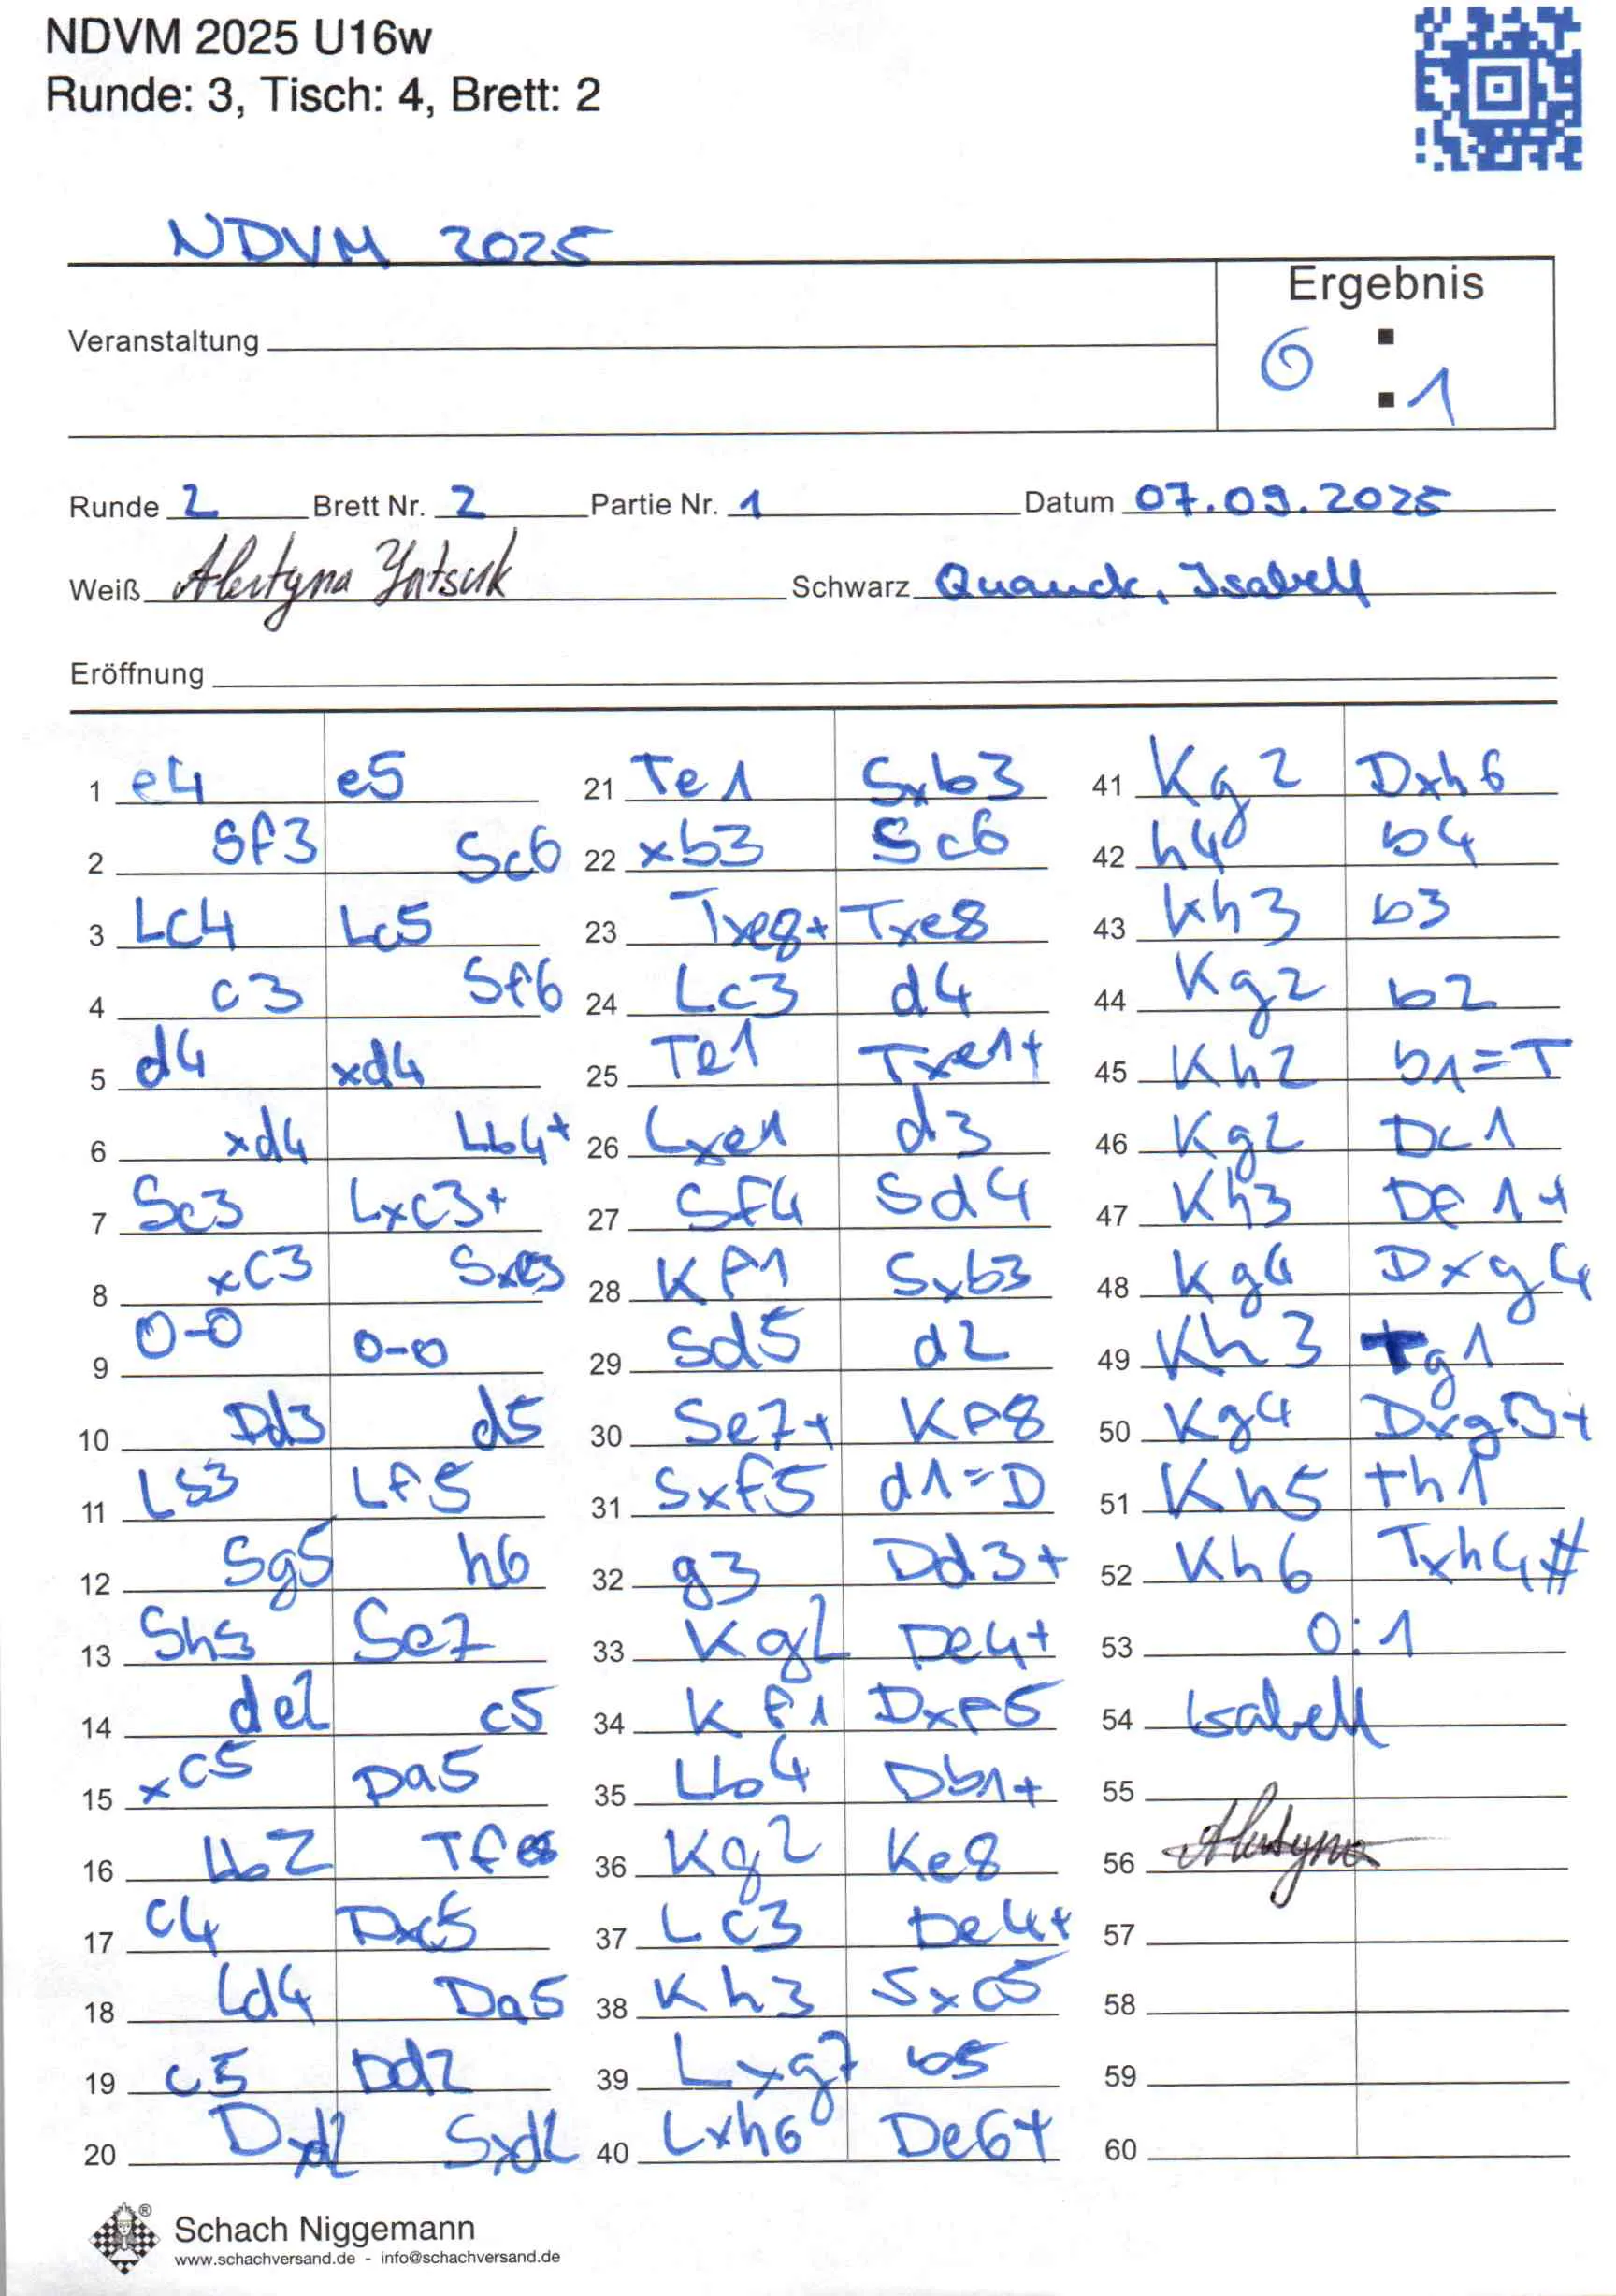 NDVM 2025 U16w
Runde: 3, Tisch: 4, Brett: 2
NDVM 2025
Ergebnis
Veranstaltung
0 : 1
Runde 2 Brett Nr. 2 Partie Nr. 1 Datum 07.09.2025
Weiß Schwarz Quanck, Isabell
Eröffnung
1 e4 e5 21 Te1 Sxb3 41 Kg2 Dxh6
2 Sf3 Sc6 22 xb3 Sc6 42 h4 b4
3 Lc4 Lc5 23 Txe8+ Txe8 43 Kh3 b3
4 c3 Sf6 24 Lc3 d4 44 Kg2 b2
5 d4 xd4 25 Te1 Txe1+ 45 Kh2 b1=T
6 xd4 Lb4+ 26 Lxe1 d3 46 Kg2 Dc1
7 Sc3 Lxc3+ 27 Sf4 Sd4 47 Kh3 Df1+
8 xc3 28 Kf1 Sxb3 48 Kg4 Dxg4
9 0-0 0-0 29 Sd5 d2 49 Kh3 Tg1
10 Dd3 d5 30 Se7+ Kf8 50 Kg4 Dxg3+
11 Lb3 Lf5 31 Sxf5 d1=D 51 Kh5 th1
12 Sg5 h6 32 g3 Dd3+ 52 Kh6 Txh4#
13 Sh3 Se7 33 Kg2 De4+ 53 0:1
14 de2 c5 34 Kf1 Dxf5 54 Isabell
15 xc5 Da5 35 Lb4 Db1+ 55
16 Lb2 Tfe8 36 Kg2 Ke8 56
17 c4 Dxc5 37 Lc3 De4+ 57
18 Ld4 Da5 38 Kh3 Sxc5 58
19 c5 Dd2 39 Lxg7 b5 59
20 Dxd2 Sxd2 40 Lxh6 De6+ 60
®
Schach Niggemann
www.schachversand.de - info@schachversand.de